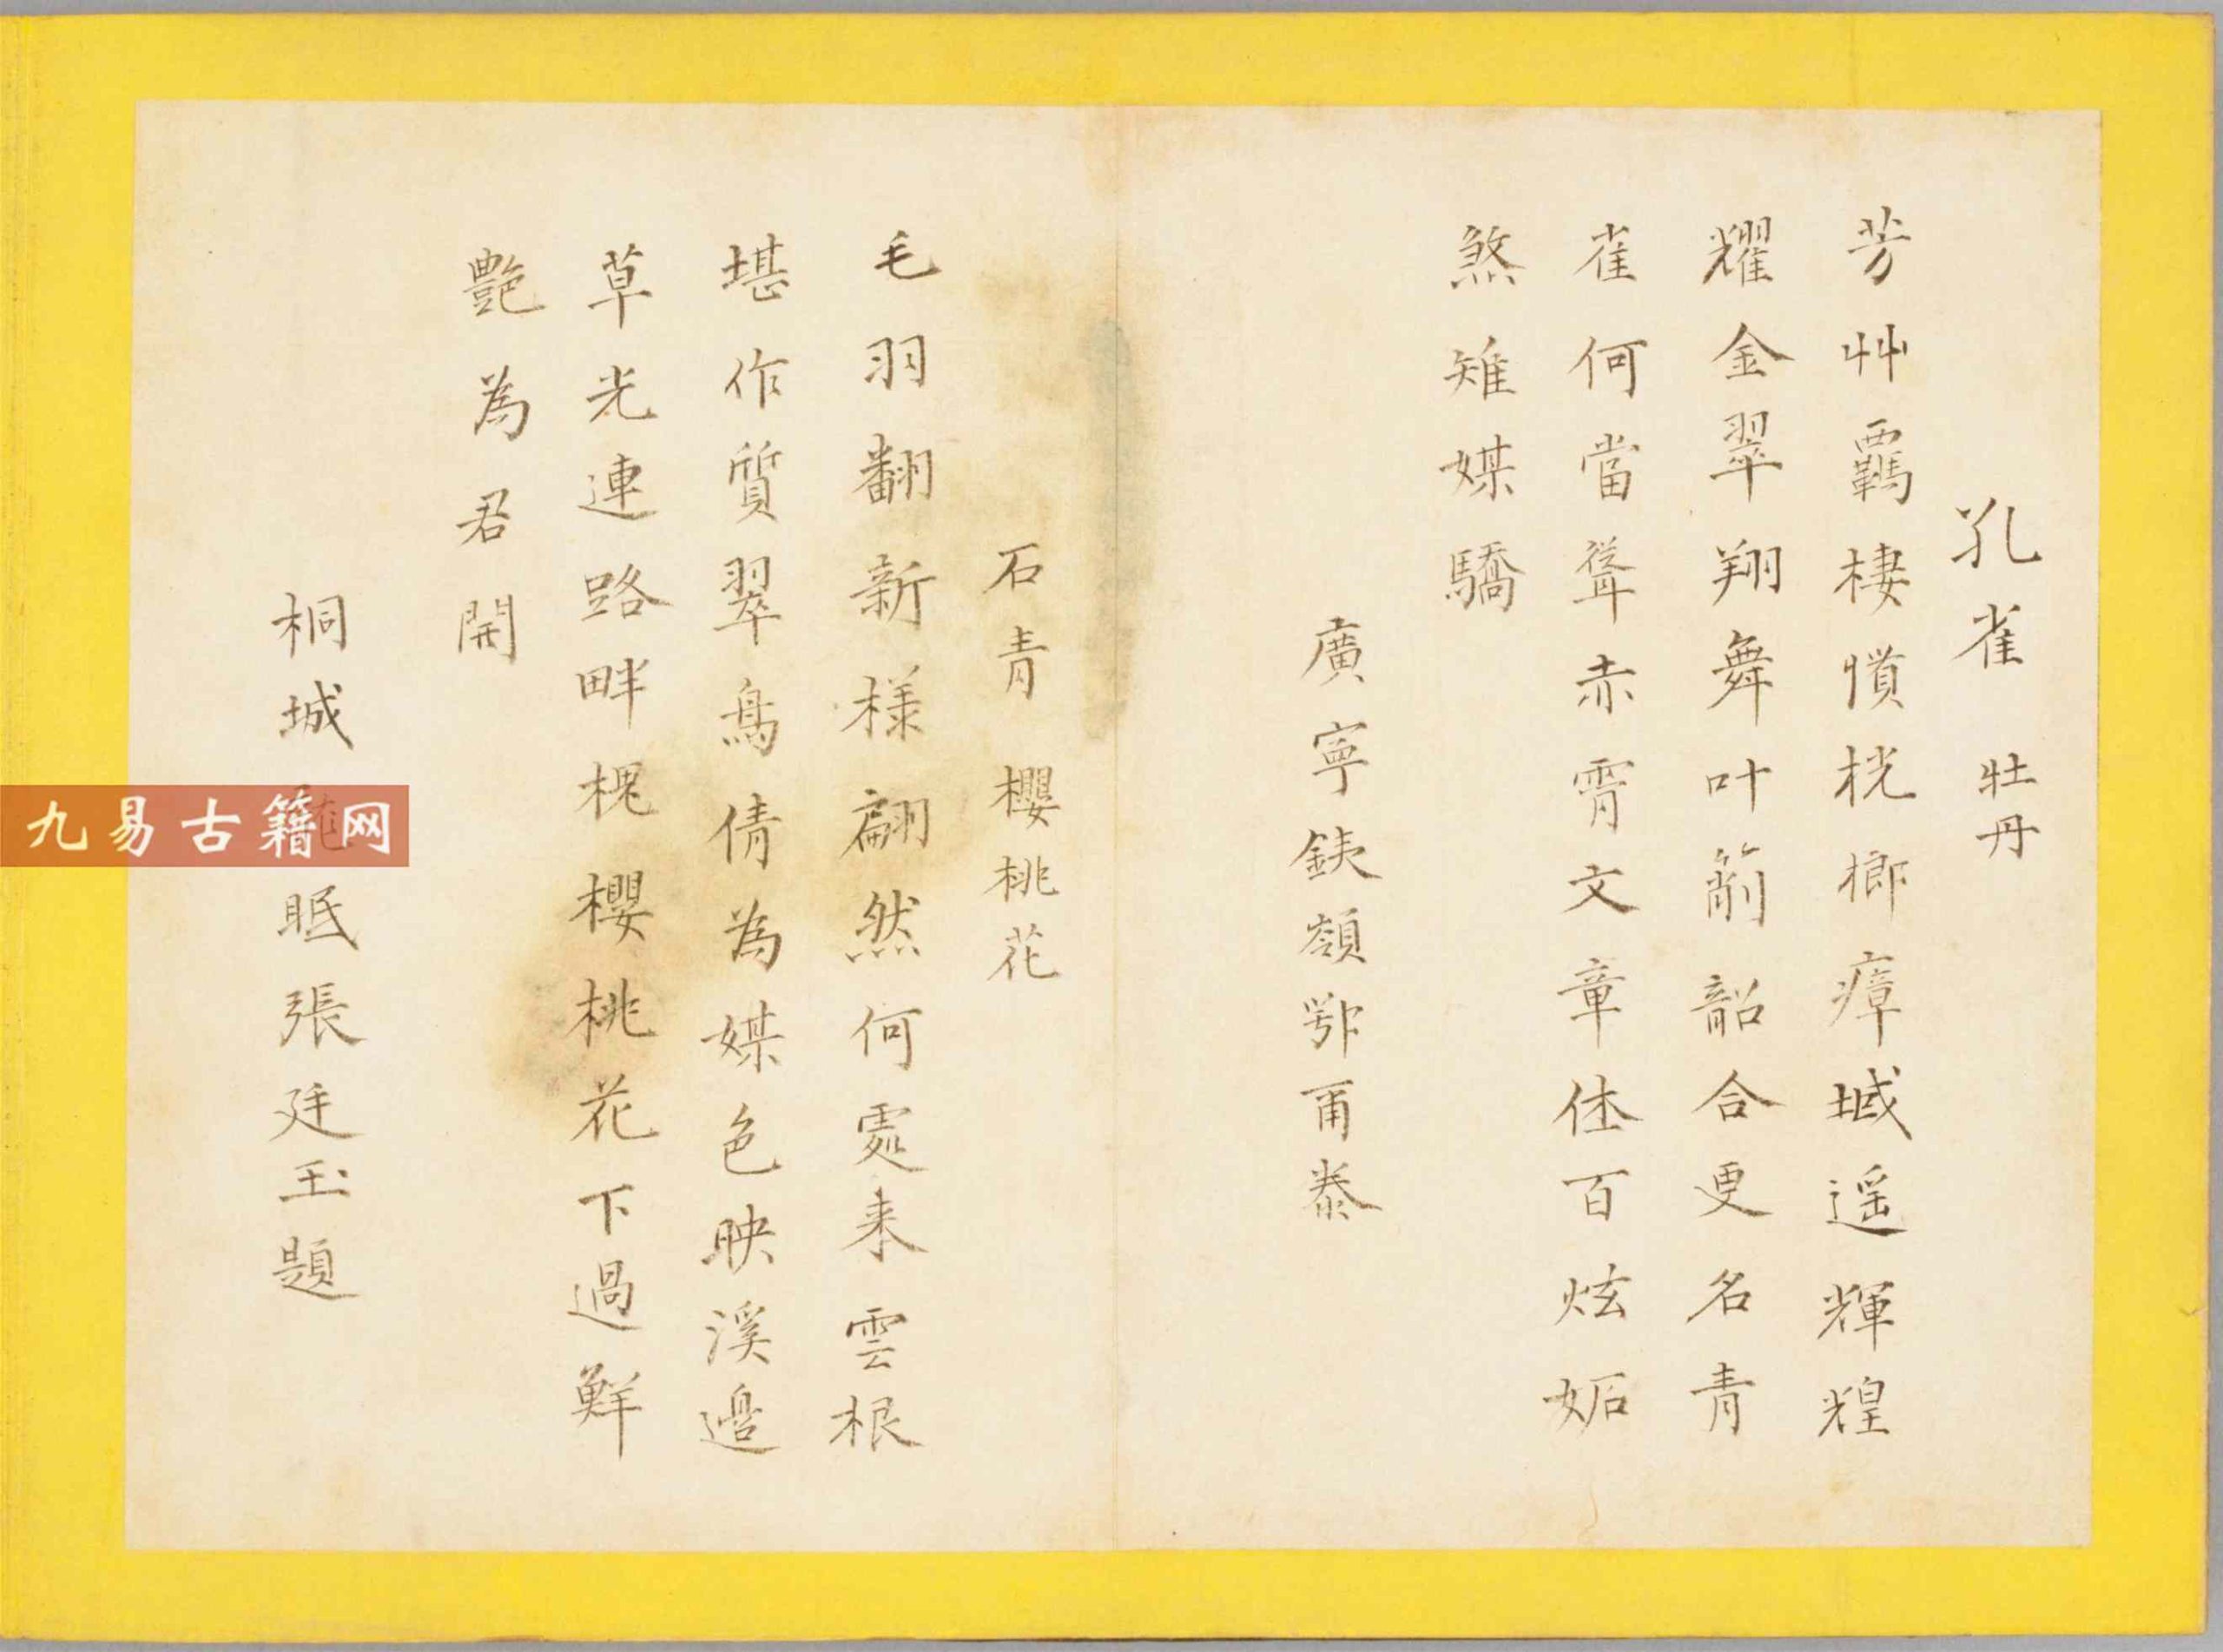 孔雀 牡丹
芳艸覊棲憤桄榔瘴域遥輝煌
耀金翠翔舞叶箾韶合更名青
雀何當聳赤霄文章佳百炫妬
煞雉媒驕
廣寧鐵嶺鄂爾泰
石青 櫻桃花
毛羽翻新樣翩然何處来雲根
堪作質翠鳥倩為媒色映溪邊
草光連路畔槐櫻桃花下過鮮
艷為君開
桐城 眠張廷玉題
九易古籍网